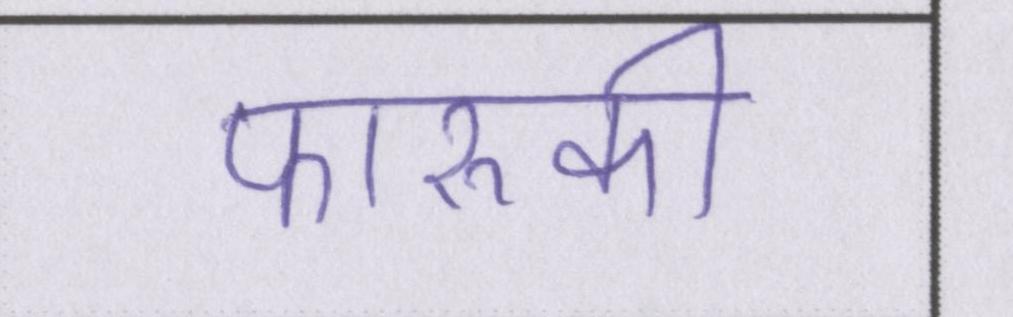 फारुकी